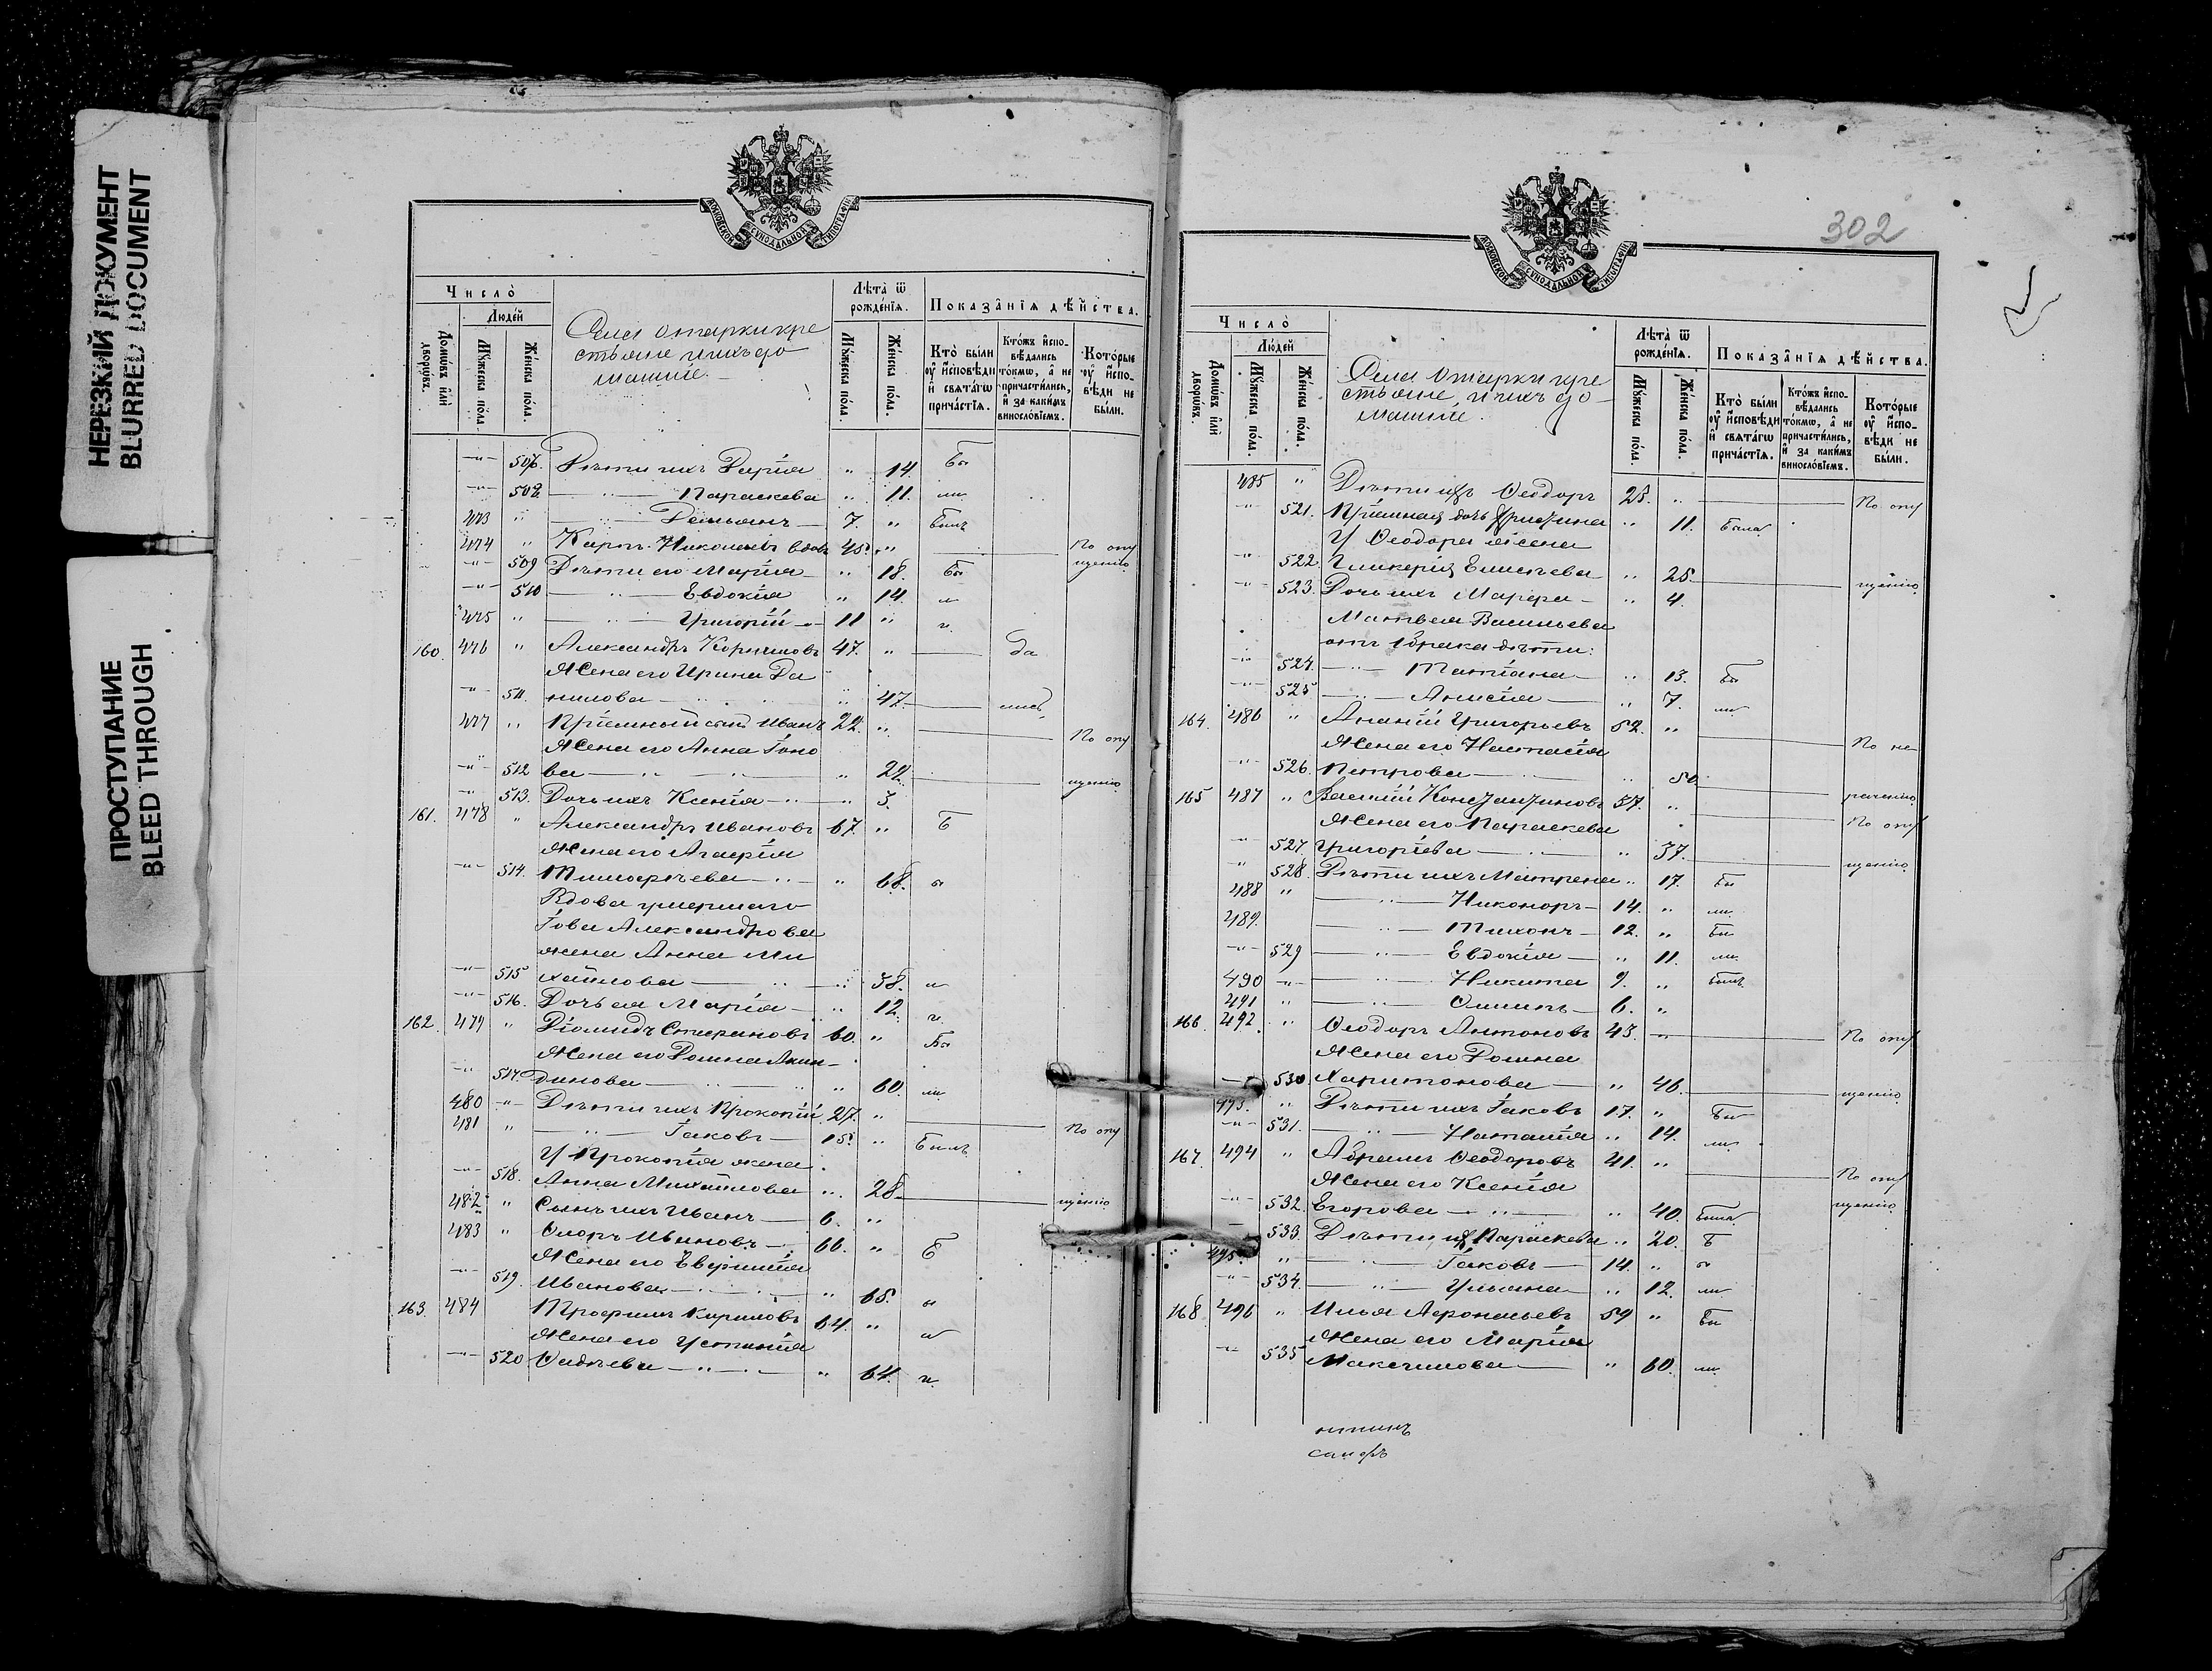 НЕРЕЗКИЙ ДОКУМЕНТ
BLURRED DOCUMENT
ПРОСТУПАНИЕ
BLEED THROUGH
МОСКОВСКОЙ СѴНОДАЛЬНОЙ ТИПОГРАФІИ
Число̀
Люде́й
Домѡ́въ и҆лѝ дворѡ́въ.
Мꙋ́жеска по́ла.
Же́нска по́ла.
Села Отарки кре
стьяне и ихъ до
машніе.
Лѣ́та ѿ рожде́нїѧ.
Мꙋ́жеска по́ла
Же́нска по́ла.
Показа̑нїѧ дѣ́йства.
Кто̀ бы́ли оу҆ и҆сповѣ́ди и҆ свѧта́гѡ прича́стїѧ.
Кто́жъ и҆спо- вѣ́дались то́кмѡ, а҆ не причасти́лись, и҆ за каки́мъ винослⷪ҇вїемъ.
Кото́рые оу҆ и҆спо- вѣ́ди не бы́ли.
-"- 507. Дѣти ихъ Дарія " 14. Бы
-"- 508. -"- Параскева " 11. ли.
473 " -"- Демьянъ 7. " былъ
474 " Карпъ Николаевъ вдовъ 45. " По опу
-"- 509 Дѣти его Марія " 18. Бы щенію
-"- 510 -"- Евдокія " 14. л
475 " -"- Григорій 11 " и.
160. 476 " Александръ Корниловъ 47. " да
Жена его Ирина Да
-"- 511. нилова " 47. лись
477 " Пріемный сынъ Иванъ 22. " По опу
Жена его Анна Іоно
-"- 512 ва " 22. щенію
-"- 513. Дочь ихъ Ксенія " 3.
161. 478 " Александръ Ивановъ 67. " Б
Жена его Агафія
-"- 514. Тимофѣева " 68. ы
Вдова умершаго
Іова Александрова
жена Анна Ми
-"- 515 хайлова " 38. л
-"- 516. Дочь ея Марія " 12. и.
162. 479 " Діомидъ Стефановъ 60. " Бы
Жена его Домна Акин-
-"- 517. динова " 60. ли.
480 -"- Дѣти ихъ Прокопій 27. " По опу
481 " -"- Іаковъ 15. " Былъ
У Прокопія жена
-"- 518. Анна Михайлова " 28. щенію
482 " Сынъ ихъ Иванъ 6. "
483 " Ивановъ 66. " Б
Жена его Евфимія
-"- 519. Иванова " 65. ы
163. 484 Трофимъ Кириловъ 64. " л
Жена его Устинія
-"- 520 Фадѣева " 64. и.
302
МОСКОВСКОЙ СѴНОДАЛЬНОЙ ТИПОГРАФІИ
Число̀
Люде́й
Домѡ́въ и҆лѝ дворѡ́въ.
Мꙋ́жеска по́ла.
Же́нска по́ла.
Села Отарки кре
стьяне, и ихъ до-
машніе.
Лѣ́та ѿ рожде́нїѧ.
Мꙋ́жеска по́ла.
Же́нска по́ла.
Показа̑нїѧ дѣ́йства.
Кто̀ бы́ли оу҆ и҆сповѣ́ди и҆ свѧта́гѡ прича́стїѧ.
Кто́жъ и҆спо- вѣ́дались то́кмѡ, а҆ не причасти́лись, и҆ за каки́мъ винослⷪ҇вїемъ.
Кото́рые оу҆ и҆спо- вѣ́ди не бы́ли.
485 " Дѣти ихъ Ѳеодоръ 25. " По опу
-"- 521. Пріемная дочь Христина " 11. Была
У Ѳеодора жена
-"- 522. Гликерія " 25. щенію
-"- 523. Дочь ихъ Марфа " 4.
Матвея Васильева
отъ 1 брака дѣти:
-"- 524. -"- Татіана " 13. Бы
-"- 525 -"- Анисія " 7. ли
164. 486 " Ананій Григорьевъ 52. " По не
Жена его Настасія
-"- 526. Петрова " 50. раченію
165 487 " Василій Константиновъ 37. " По опу
Жена его Параскева
-"- 527 Григоріева " 37. щенію
" 528. Дѣти ихъ Матрена " 17. Бы
488 " -"- Никоноръ 14. " ли.
489. -"- Тихонъ 12. " Бы
-"- 529 -"- Евдокія " 11. ли.
490 -"- -"- Никита 9. " былъ
491 " -"- 6. "
166. 492. " Ѳеодоръ Антоновъ 43. " По опу
Жена его Домна
530 Харитонова " 46. щенію
493. " Дѣти ихъ Іаковъ 17. " Бы
-"- 531. -"- Наталія " 14. ли.
167. 494 " Абрамъ Ѳеодоровъ 41. " По опу
Жена его Ксенія
-"- 532. Егорова " 40. была щенію
533. Дѣти ихъ Параскева " 20. Б
495. " -"- Іаковъ 14. " ы
-"- 534. -"- Ульяна " 12. ли
168. 496 " Илья Афонасьевъ 59 " Бы
Жена его Марія
-"- 535 Максимова " 60. ли.